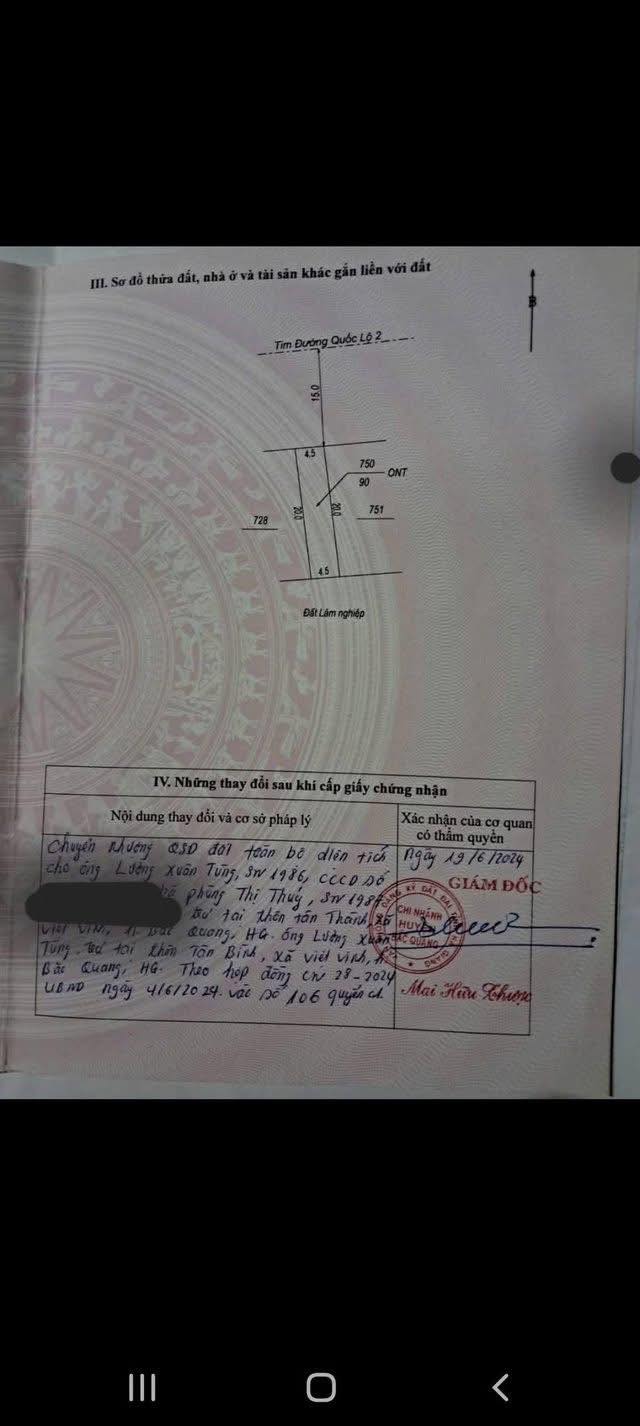 III. Sơ đồ thửa đất, nhà ở và tài sản khác gắn liền với đất
B
Tim Đường Quốc Lộ 2
15.0
4.5
750
90
ONT
20.0
20.0
728
751
4.5
Đất Lâm nghiệp
IV. Những thay đổi sau khi cấp giấy chứng nhận
Nội dung thay đổi và cơ sở pháp lý
Xác nhận của cơ quan
có thẩm quyền
Chuyển nhượng QSD đất toàn bộ diện tích
cho ông Lương Xuân Tùng, SN 1986, CCCD số
bà Phùng Thị Thuý, SN 1986
trú tại thôn Tân Thành, xã
Việt Vinh, H. Bắc Quang, HG. ông Lương Xuân
Tùng. trú tại thôn Tân Bình, xã Việt Vinh, H.
Bắc Quang, HG. Theo hợp đồng CN 28-2024
UBND ngày 4/6/2024. vào số 106 quyển ct.
Ngày 19/6/2024
GIÁM ĐỐC
ĐĂNG KÝ ĐẤT ĐAI
CHI NHÁNH
HUYỆN
BẮC QUANG
Mai Hữu